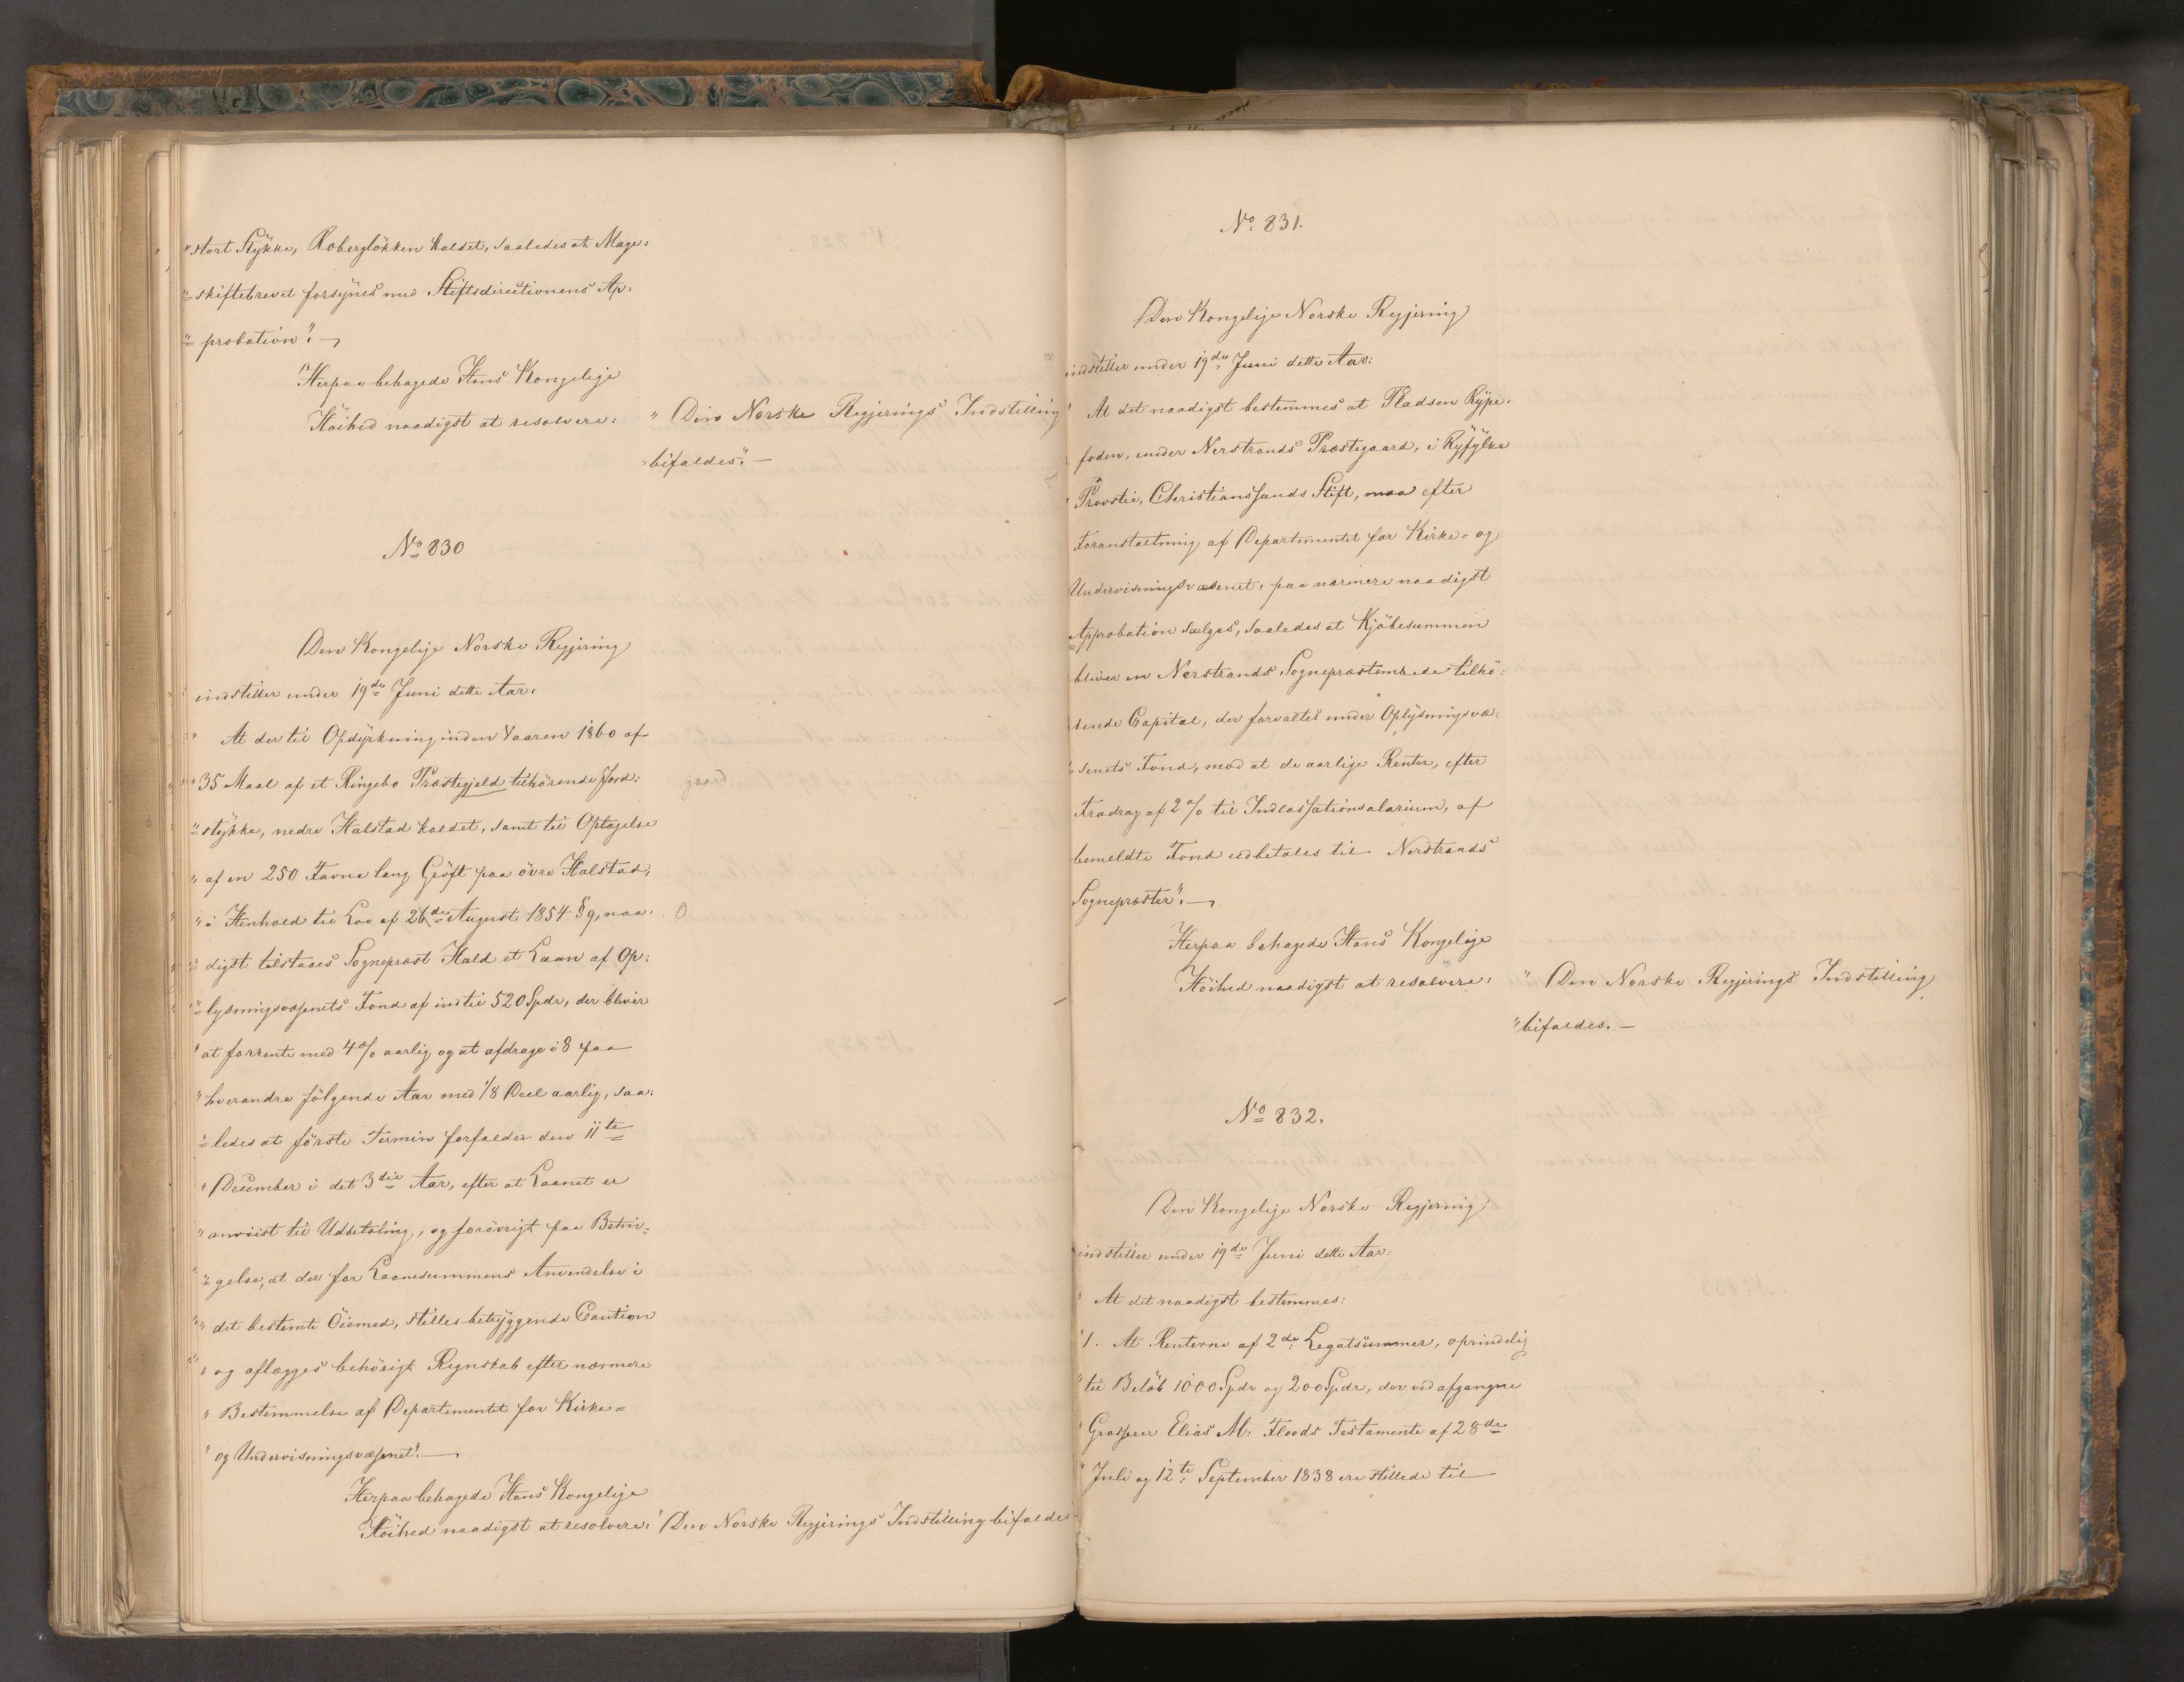 "stort Stykke, Roberglökken kaldet, saaledes at Mage-
"skiftebrevet forsynes med Stiftsdirectionens Ap-
"probation". —
Herpaa behagede Hans Kongelige
Höihed naadigst at resolvere:
"Den Norske Regjerings Indstilling
"bifaldes". —
No 830
Den Kongelige Norske Regjering
indstiller under 19de Juni dette Aar:
" At der til Opdyrkning inden Vaaren 1860 af
"35 Maal af et Ringebo Præstegjeld tilhörende Jord-
"stykke, nedre Halstad kaldet, samt til Optagelse
"af en 250 Favne lang Gröft paa övre Halstad,
"i Henhold til Lov af 26de August 1854 § 9, naa-
"digst tilstaaes Sognepræst Hald et Laan af Op-
"lysningsvæsenets Fond af indtil 520 Spdr, der bliver
"at forrente med 4 % aarlig og at afdrage i 8 paa
"hverandre fölgende Aar med 1/8 Deel aarlig, saa-
"ledes at förste Termin forfalder den 11te
"December i det 3die Aar, efter at Laanet er
"anviist til Udbetaling, og forövrigt paa Betin-
"gelse, at der for Laanesummens Anvendelse i
"det bestemte Öiemed, stilles betryggende Caution
"og aflægges behörigt Regnskab efter nærmere
"Bestemmelse af Departementet for Kirke-
"og Undervisningsvæsenet". —
Herpaa behagede Hans Kongelige
Höihed naadigst at resolvere:
"Den Norske Regjerings Indstilling bifaldes
No 831.
Den Kongelige Norske Regjering
indstiller under 19de Juni dette Aar:
" At det naadigst bestemmes at Pladsen Rype-
foden, under Nerstrands Præstegaard, i Ryfylke
"Provstie, Christianssands Stift, maa efter
Foranstaltning af Departementet for Kirke- og
Undervisningsvæsenet, paa nærmere naadigst
Approbation sælges, saaledes at Kjöbesummen
bliver en Nerstrands Sognepræstembede tilhö-
rende Capital, der forvaltes under Oplysningsvæ-
"senets Fond, mod at de aarlige Renter, efter
Fradrag af 2 % til Indcassationsalarium, af
bemeldte Fond udbetales til Nerstrands
Sognepræster". —
Herpaa behagede Hans Kongelige
Höihed naadigst at resolvere:
"Den Norske Regjerings Indstilling
"bifaldes. —
No 832.
Den Kongelige Norske Regjering
indstiller under 19de Juni dette Aar:
" At det naadigst bestemmes:
"1. At Renterne af 2de Legatsummer, oprindelig
"til Belöb 1000 Spdr og 200 Spdr, der ved afgangne
"Grosserer Elias M. Floods Testamente af 28de
"Juli og 12te September 1838 ere stillede til